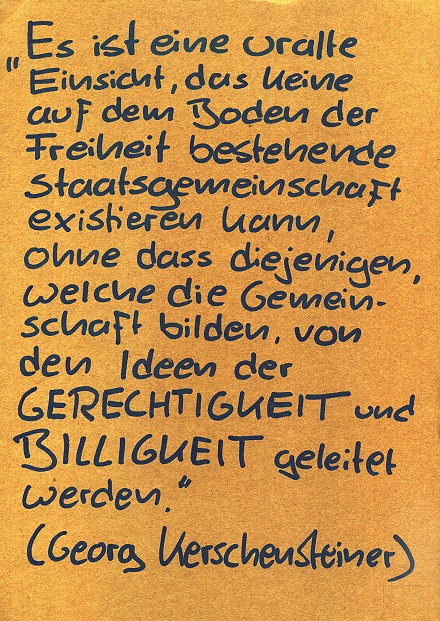 "Es ist eine uralte
Einsicht, das keine
auf dem Boden der
Freiheit bestehende
Staatsgemeinschaft
existieren kann,
ohne dass diejenigen,
welche die Gemein-
schaft bilden, von
den Ideen der
GERECHTIGKEIT und
BILLIGKEIT geleitet
werden."
(Georg Kerschensteiner)